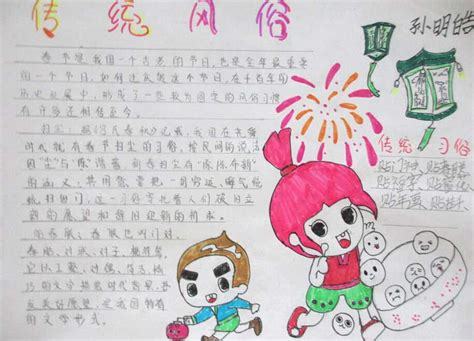 传统风俗
孙明皓
春节是我国一个古老的节日,也是全年最重要
的一个节日,如何过庆贺这个节日,在千百年的
历史发展中,形成了一些较为固定的风俗习惯
有许多还相传至今。
扫尘
我国在尧舜
时代就有春节扫尘的习俗,按民间的说法
因"尘"与"陈"谐音,新春扫尘有"除陈布新"
的涵义,其用意是把一切穷运、晦气统
统扫出门,这一习俗寄托着人们破旧立
新的愿望和辞旧迎新的祈求。
贴春联:春联也叫门对、
春贴、对联、对子、桃符等,
它以工整、对偶、简洁、精
巧的文字描绘时代背景,抒
发美好愿望,是我国特有
的文学形式。
传统习俗
贴门神、贴春联
贴福字、贴窗花
贴年画、贴挂